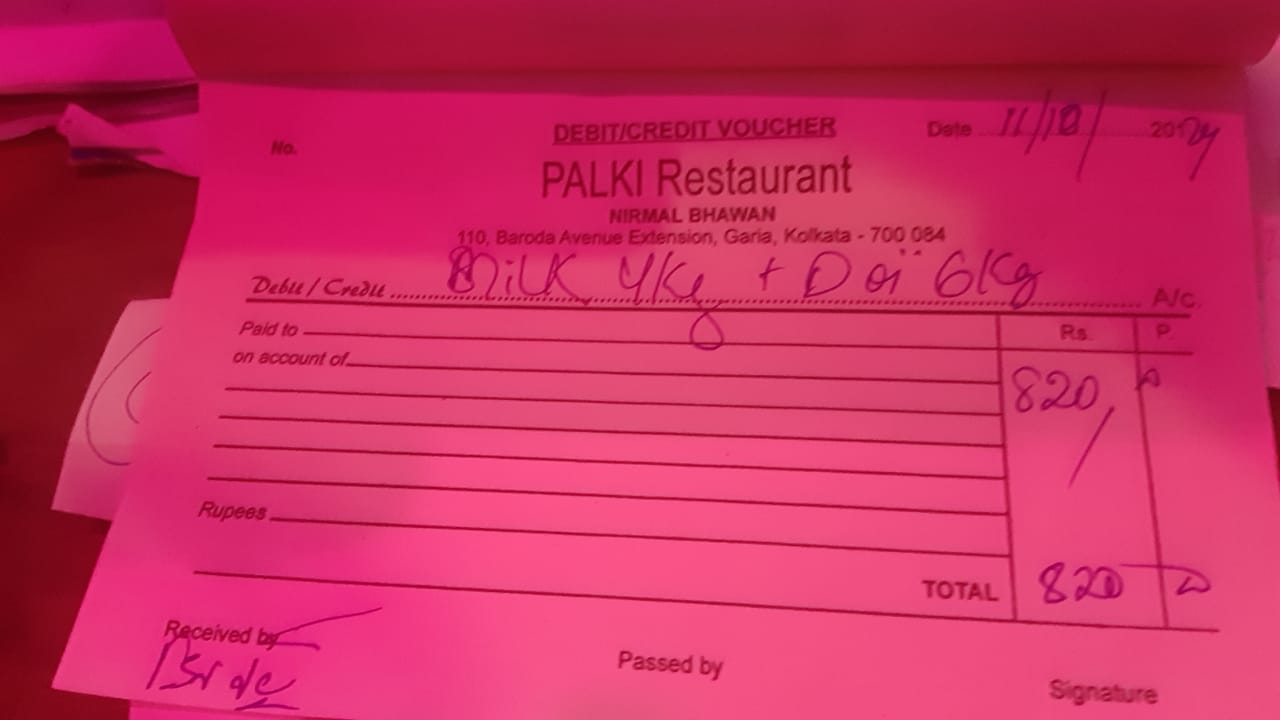 DEBIT/CREDIT VOUCHER
No.
Date 11/10/ 2024
PALKI Restaurant
NIRMAL BHAWAN
110, Baroda Avenue Extension, Garia, Kolkata - 700 084
Debit / Credit Milk 4Kg + Doi 6Kg A/c.
Paid to
Rs. P.
on account of
820/
Rupees
TOTAL 820
Received by
Passed by
Signature